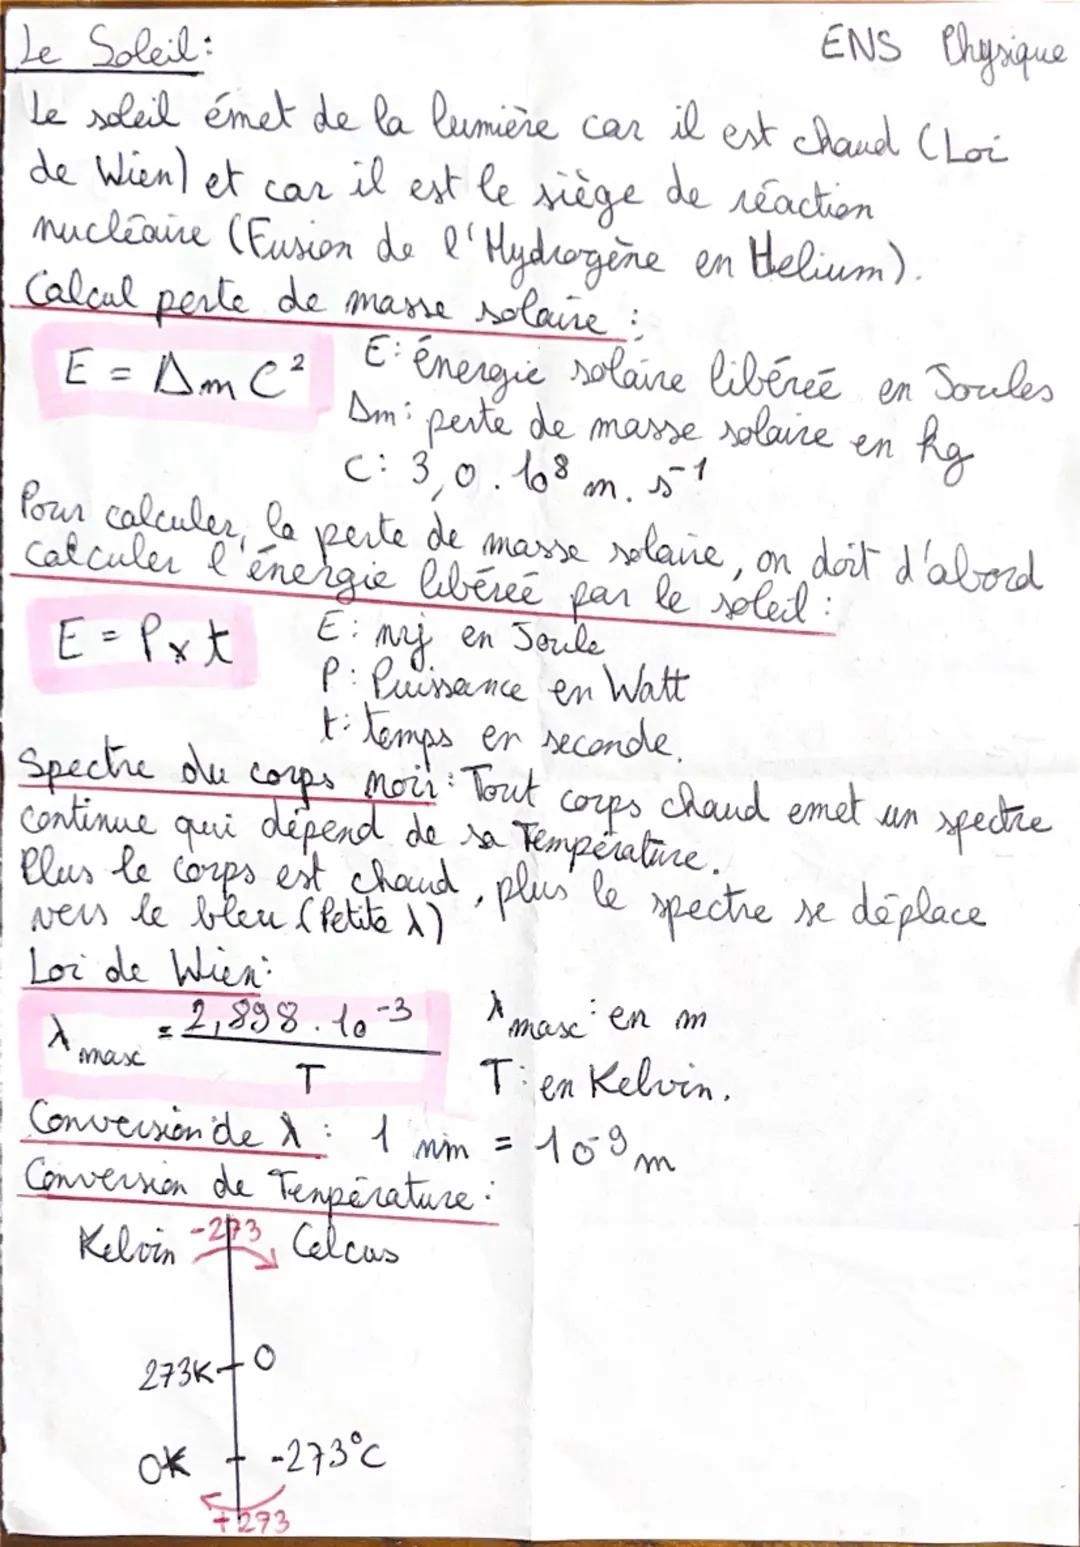 Le Soleil: ENS Physique
Le soleil émet de la lumière car il est chaud (Loi
de Wien) et car il est le siège de réaction
nucléaire (Fusion de l'Hydrogène en Helium).
Calcul perte de masse solaire :
E = Δm C² E: énergie solaire libéreé en Joules
Δm: perte de masse solaire en kg
C: 3,0.10⁸ m.s⁻¹
Pour calculer, la perte de masse solaire, on doit d'abord
calculer l'énergie libéreé par le soleil :
E = P x t E: nrj en Joule
P: Puissance en Watt
t: temps en seconde.
Spectre du corps noir: Tout corps chaud emet un spectre
continue qui dépend de sa Température.
Plus le corps est chaud, plus le spectre se déplace
vers le bleu (Petite λ)
Loi de Wien:
λmax = 2,898.10⁻³ / T λmax: en m
T: en Kelvin.
Conversion de λ : 1 nm = 10⁻⁹ m
Conversion de Température :
Kelvin -273 Celcus
273K 0
0K -273°C
+273